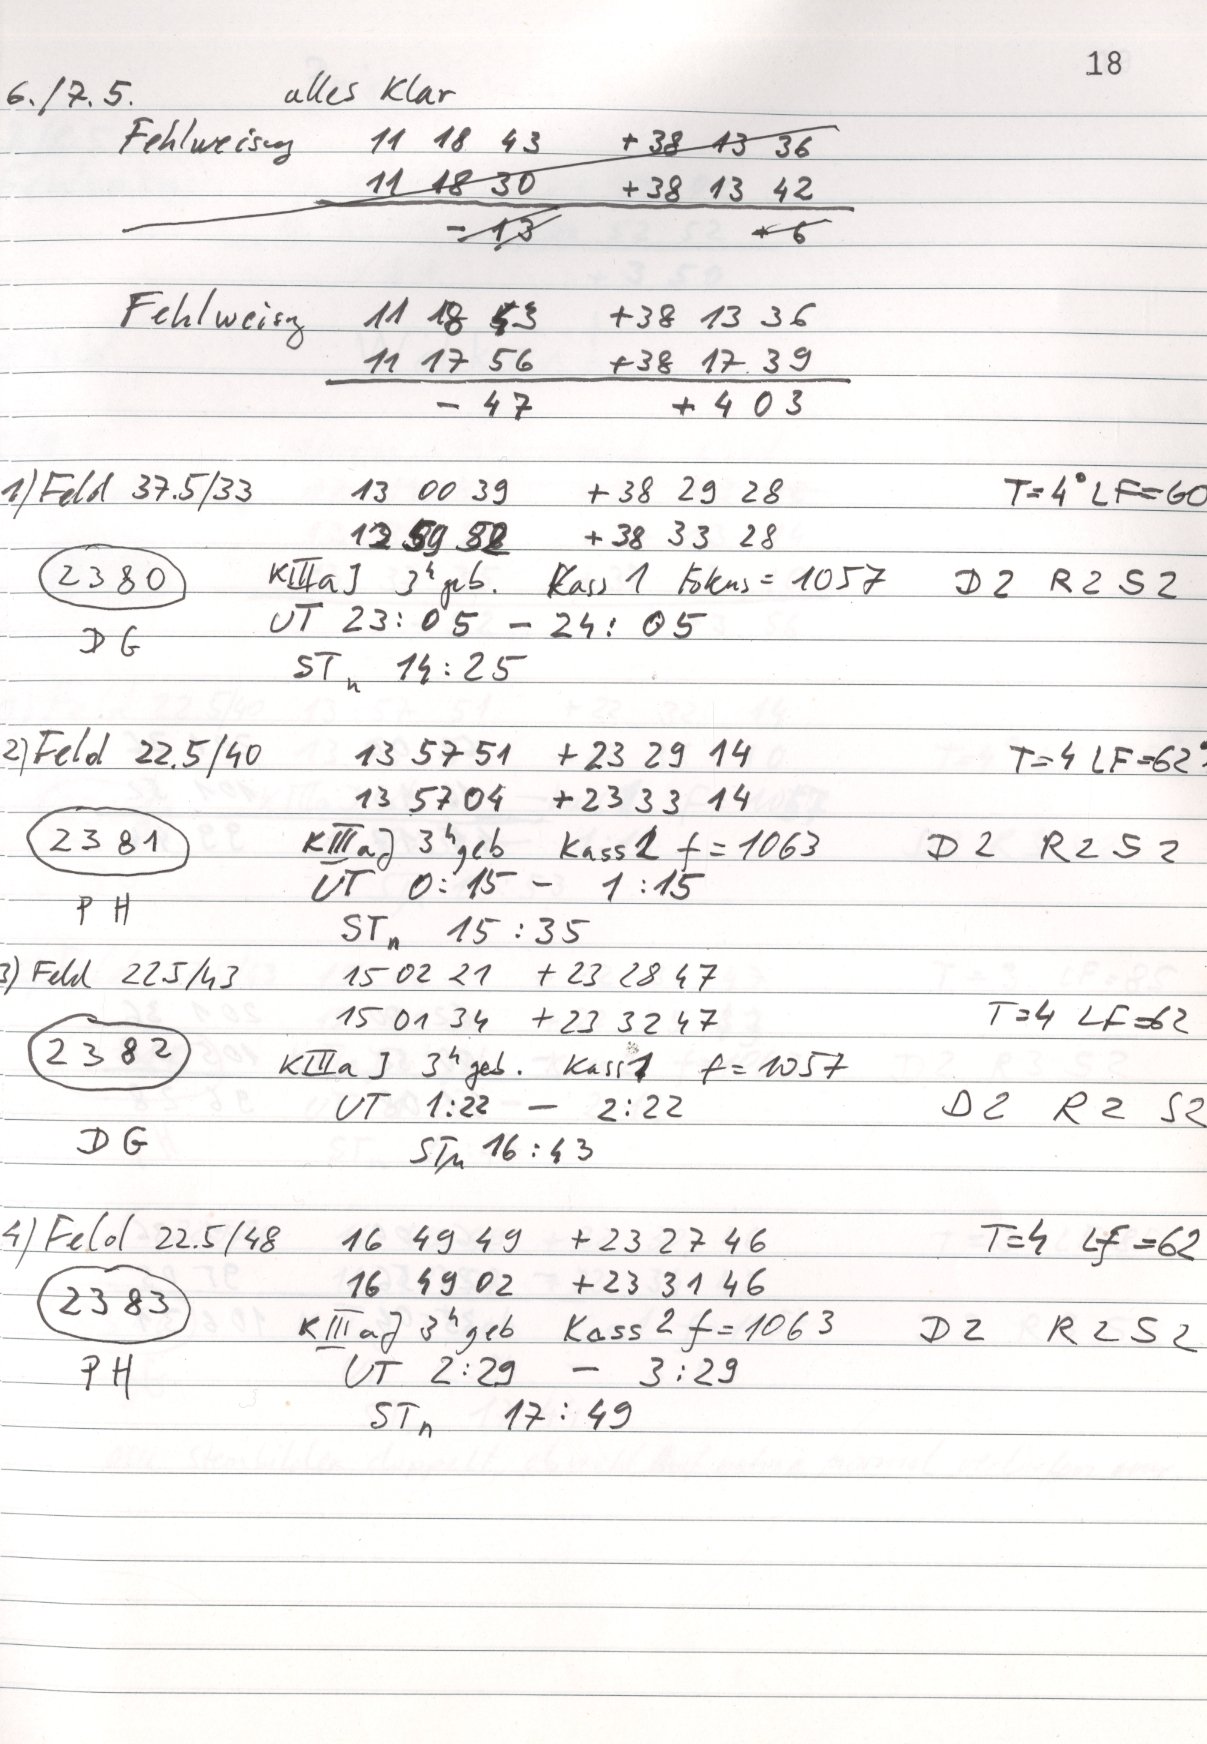 18
6./7.5. alles Klar
Fehlweisung 11 18 43 +38 13 36
11 18 30 +38 13 42
- 13 + 6
Fehlweisg 11 18 43 +38 13 36
11 17 56 +38 17 39
- 47 + 4 03
1) Feld 37.5/33 13 00 39 +38 29 28 T=4° LF=60
12 59 52 +38 33 28
2380 KIIIaJ 3h geb. Kass 1 Fokus = 1057 D2 R2 S2
UT 23:05 - 24:05
DG
STn 14:25
2) Feld 22.5/40 13 57 51 +23 29 14 T=4 LF=62°
13 57 04 +23 33 14
2381 KIIIaJ 3h geb Kass 2 f=1063 D2 R2 S2
UT 0:15 - 1:15
PH
STn 15:35
3) Feld 225/43 15 02 21 +23 28 47
15 01 34 +23 32 47 T=4 LF=62
2382 KIIIaJ 3h geb. Kass 1 f=1057
UT 1:22 - 2:22 D2 R2 S2
DG
STn 16:43
4) Feld 22.5/48 16 49 49 +23 27 46 T=4 Lf=62
16 49 02 +23 31 46
2383 KIIIaJ 3h geb Kass 2 f=1063 D2 R2 S2
PH UT 2:29 - 3:29
STn 17:49